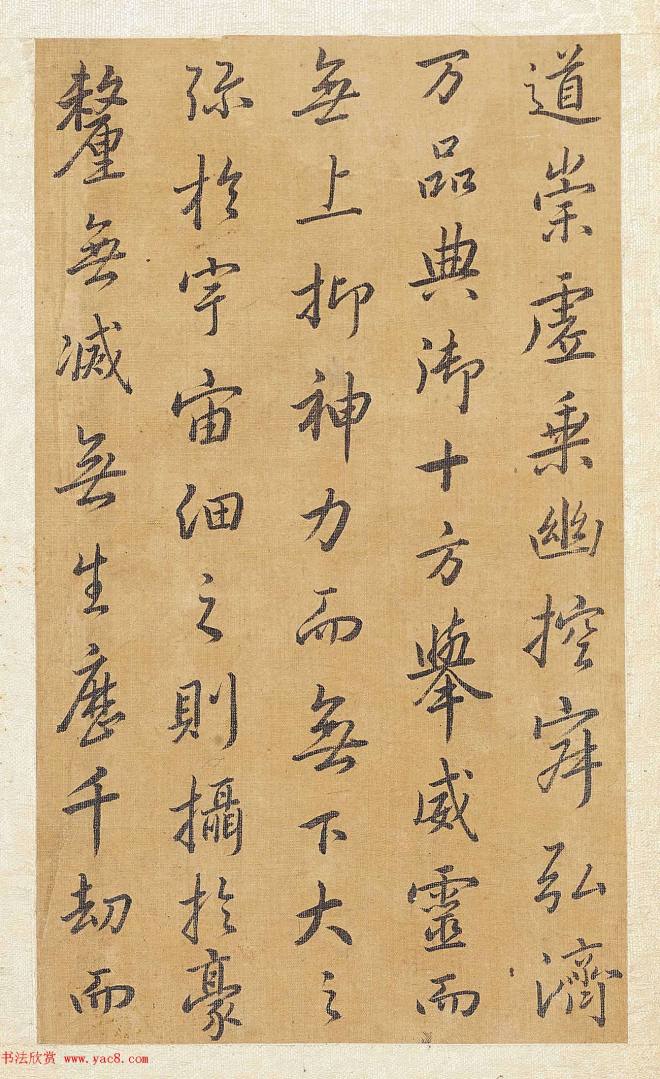 道崇虛乘幽控寂弘濟
万品典御十方舉威靈而
無上抑神力而無下大之
弥於宇宙細之則攝於豪
釐無滅無生歷千劫而
书法欣赏 www.yac8.com